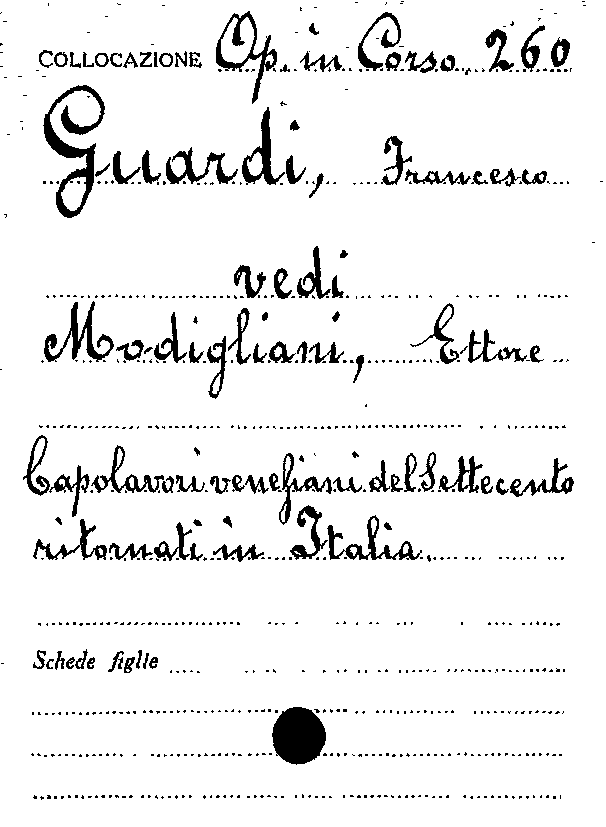 COLLOCAZIONE Op. in Corso. 260
Guardi, Francesco
vedi
Modigliani, Ettore
Capolavori veneziani del Settecento
ritornati in Italia.
Schede figlie